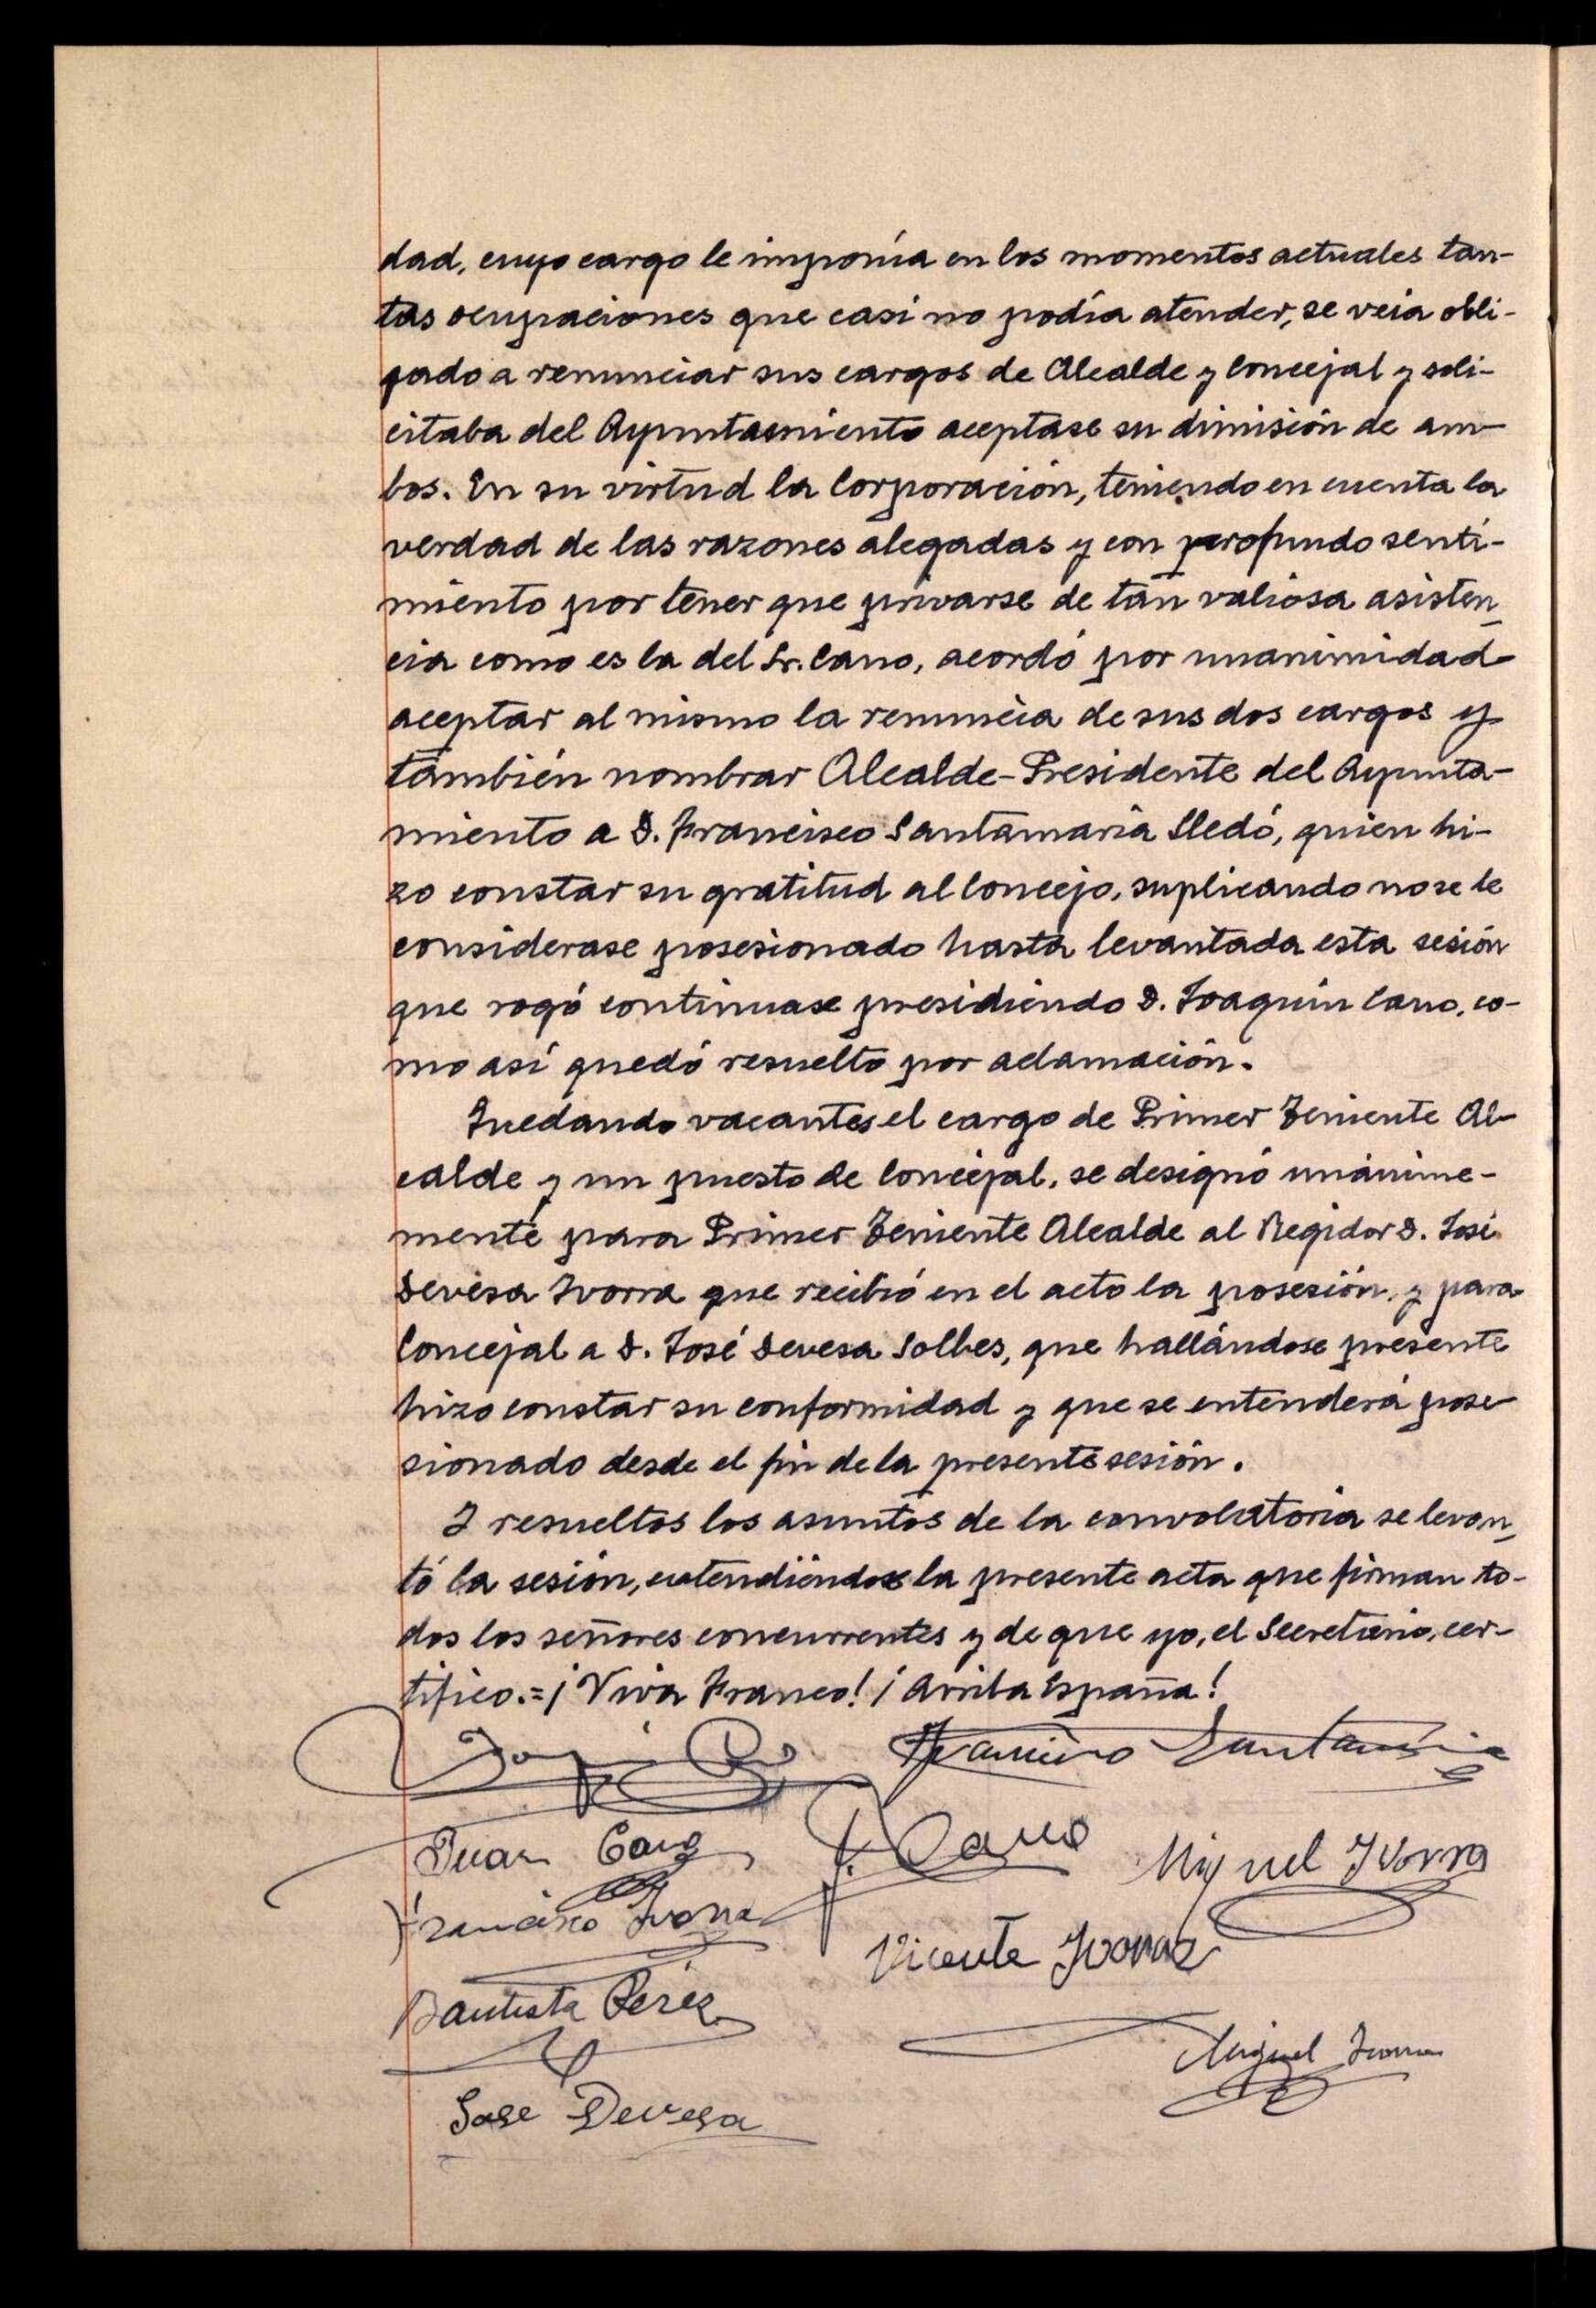 dad, cuyo cargo le imponía en los momentos actuales tan-
tas ocupaciones que casi no podía atender, se veia obli-
gado a renunciar sus cargos de Alcalde y Concejal y soli-
citaba del Ayuntamiento aceptase su dimisión de am-
bos. En su virtud la Corporación, teniendo en cuenta la
verdad de las razones alegadas y con profundo senti-
miento por tener que privarse de tan valiosa asisten-
cia como es la del Sr. Cano, acordó por unanimidad
aceptar al mismo la renuncia de sus dos cargos y
también nombrar Alcalde-Presidente del Ayunta-
miento a D. Francisco Santamaría Lledó, quien hi-
zo constar su gratitud al Concejo, suplicando no se le
considerase posesionado hasta levantada esta sesión
que rogó continuase presidiendo D. Joaquín Cano, co-
mo así quedó resuelto por aclamación.
Quedando vacantes el cargo de Primer Teniente Al-
calde y un puesto de Concejal, se designó unánime-
mente para Primer Teniente Alcalde al Regidor D. José
Devesa Ivorra que recibió en el acto la posesión, y para
Concejal a D. José Devesa Solbes, que hallándose presente
hizo constar su conformidad y que se entenderá pose-
sionado desde el fin de la presente sesión.
Y resueltos los asuntos de la convocatoria se levan-
tó la sesión, extendiéndose la presente acta que firman to-
dos los señores concurrentes y de que yo, el Secretario, cer-
tifico.=¡Viva Franco! ¡Arriba España!
Francisco Santamaría
Juan Cano J. Cano Miguel Ivorra
Francisco Ivorra
Vicente Ivorra
Bautista Pérez
Miguel Ivorra
Jose Devesa